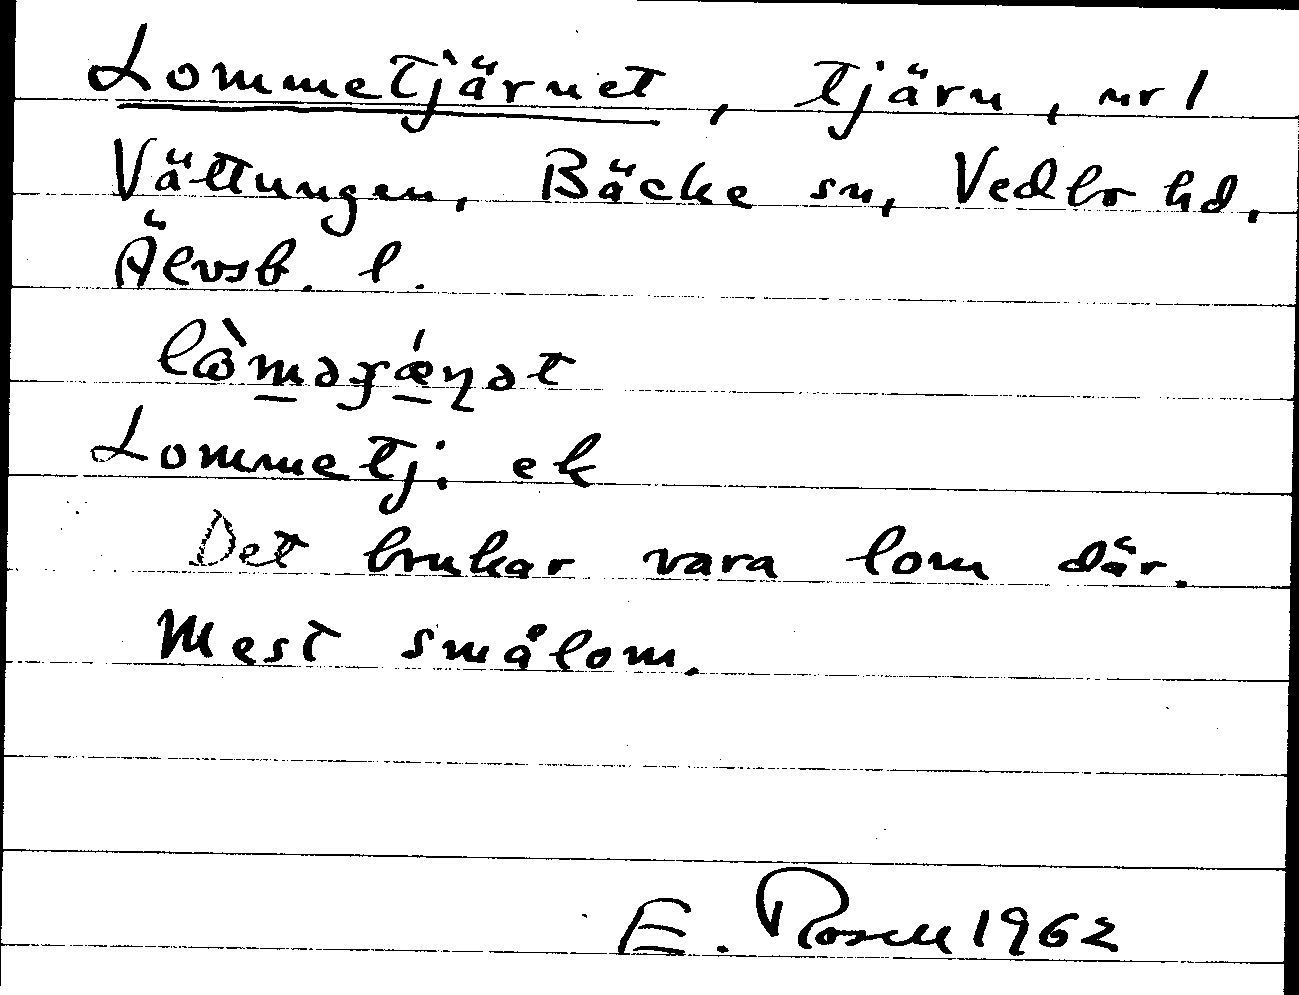 Lommetjärnet, tjärn, nr 1
Vättungen, Bäcke sn, Vedbo hd,
Älvsb. l.
Lommetj. ek
Det brukar vara lom där.
Mest smålom.
E. Rosell 1962